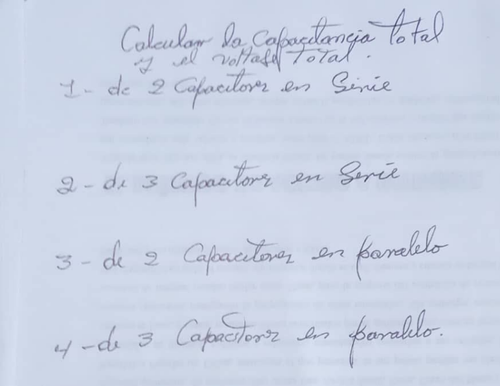 Calcular la Capacitancia total
y el voltaje total.
1- de 2 Capacitores en Serie
2- de 3 Capacitores en Serie
3- de 2 Capacitores en paralelo
4-de 3 Capacitores en paralelo.